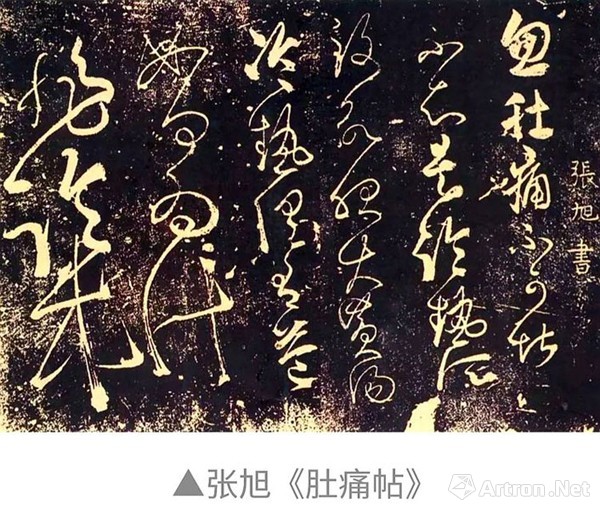 張旭書
忽肚痛不可堪
不知是冷熱所
致欲服大黃湯
冷熱俱有益
如何為計
非臨床
▲张旭《肚痛帖》
Artron.Net